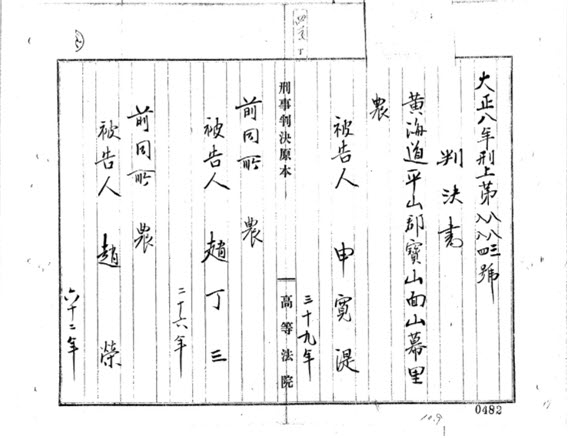 大正八年刑上第八八四三號
判決書
黃海道平山郡寶山面山幕里
農
被告人 申寬湜
三十九年
刑事判決原本
高等法院
前同所 農
被告人 趙丁三
二十六年
前同所 農
被告人 趙榮
六十二年
0482